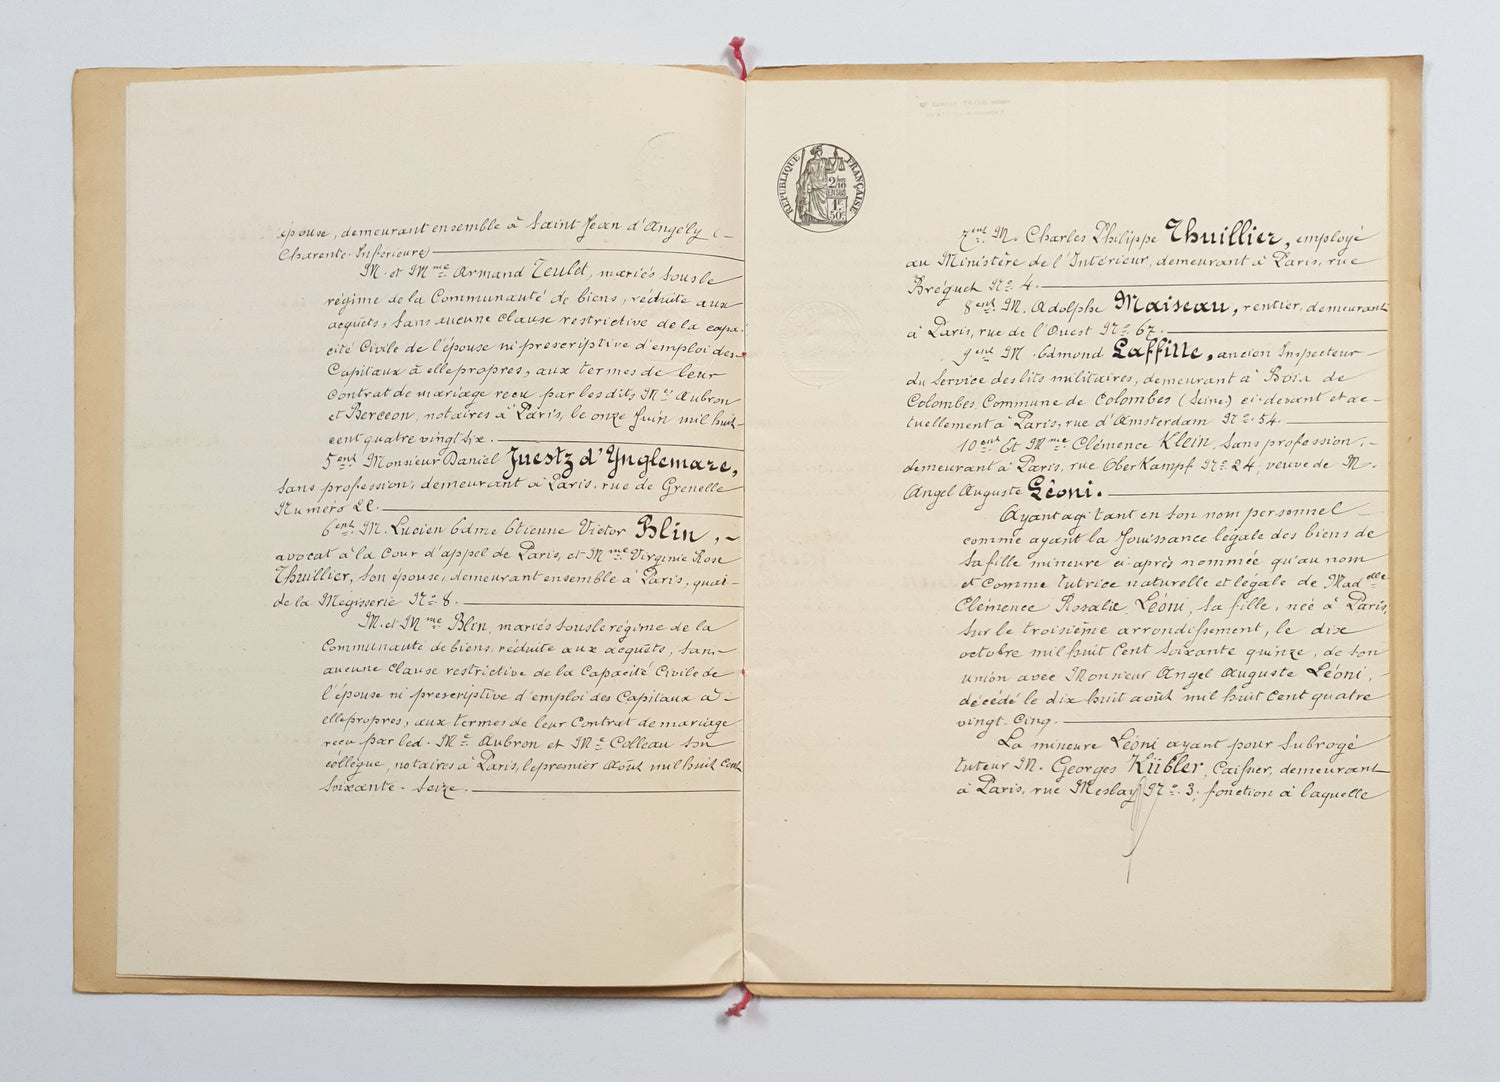 épouse, demeurant ensemble à Saint Jean d'Angély (-
Charente-Inférieure)
M. et Mme Armand Teulet, mariés sous le
régime de la Communauté de biens, réduite aux
acquêts, sans aucune clause restrictive de la capa-
cité Civile de l'épouse ni prescriptive d'emploi des
Capitaux à elle propres, aux termes de leur
Contrat de mariage reçu par les dits Mes Aubron
et Berceon, notaires à Paris, le onze Juin mil huit
cent quatre vingt six.
5ent Monsieur Daniel Juestz d'Ynglemare,
sans profession, demeurant à Paris, rue de Grenelle
Numéro 22.
6ent M. Lucien Edme Etienne Victor Blin,
avocat à la Cour d'appel de Paris, et Mme Virginie Rose
Thuillier, son épouse, demeurant ensemble à Paris, quai
de la Mégisserie No. 8.
M. et Mme Blin, mariés sous le régime de la
Communauté de biens, réduite aux acquêts, sans
aucune clause restrictive de la Capacité Civile de
l'épouse ni prescriptive d'emploi des Capitaux à
elle propres, aux termes de leur Contrat de mariage
reçu par led. Me Aubron et Me Colleau son
collègue, notaires à Paris, le premier Août mil huit Cent
soixante-seize.
RÉPUBLIQUE FRANÇAISE
2/10
EN SUS
1F
50c
7ent M. Charles Philippe Thuillier, employé
au Ministère de l'Intérieur, demeurant à Paris, rue
Bréguet No. 4.
8ent M. Adolphe Maiseau, rentier, demeurant
à Paris, rue de l'Ouest No. 67.
9ent M. Edmond Laffitte, ancien Inspecteur
du Service des lits militaires, demeurant à Bois de
Colombes, Commune de Colombes (Seine) ci-devant et ac-
tuellement à Paris, rue d'Amsterdam No. 54.
10ent Et Mme Clémence Klein, sans profession,
demeurant à Paris, rue OberKampf No. 24, veuve de M.
Angel Auguste Léoni.
Ayant agi tant en son nom personnel
comme ayant la Jouissance légale des biens de
sa fille mineure ci après nommée qu'au nom
et Comme tutrice naturelle et légale de Madelle
Clémence Rosalie Léoni, sa fille, née à Paris,
sur le troisième arrondissement, le dix
octobre mil huit Cent soixante quinze, de son
union avec Monsieur Angel Auguste Léoni,
décédé le dix huit août mil huit Cent quatre
vingt-Cinq.
La mineure Léoni ayant pour subrogé
tuteur M. Georges Kübler, Caissier, demeurant
à Paris, rue Meslay No. 3, fonction à laquelle